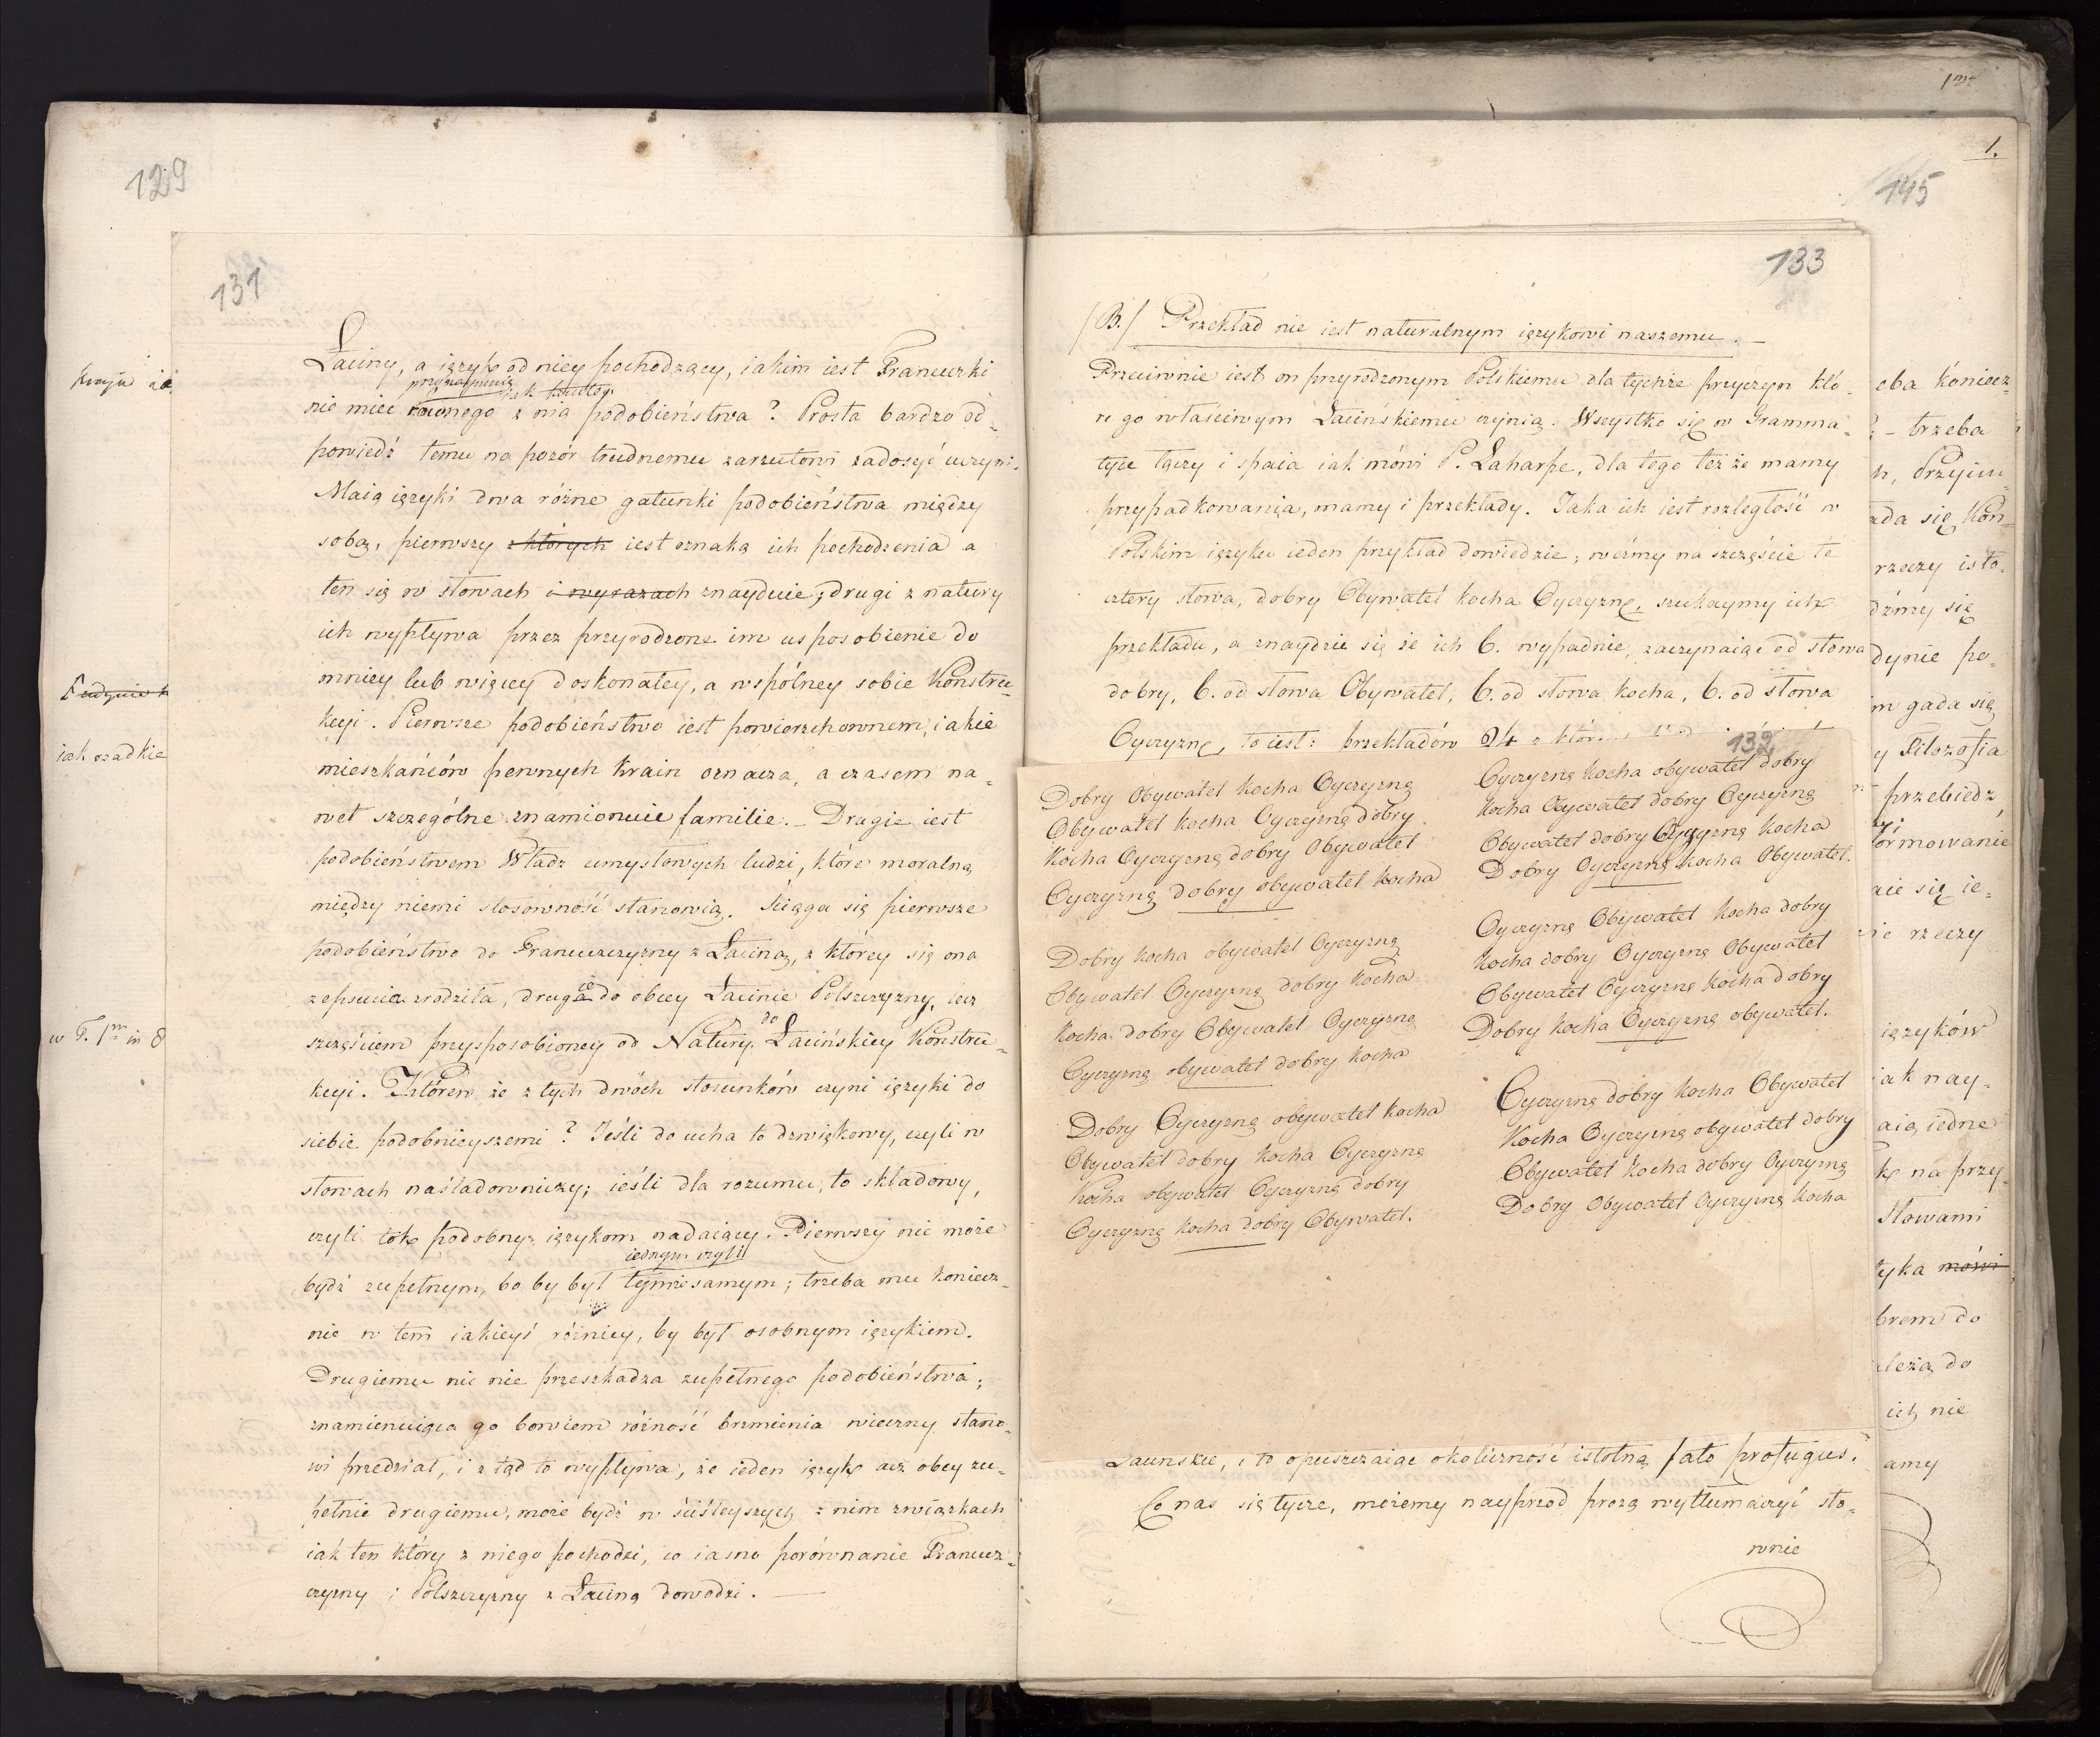 129
kraju ia
iak osadkie
w T. 1m in 8
131
Łaciny, a ięzyk od niey pochodzący, iakim iest Francuzki
nie mieć równego z nią podobieństwa? Prosta bardzo od-
powiedź temu na pozór trudnemu zarzutowi zadosyć uczyni.
Maią ięzyki dwa różne gatunki podobieństwa między
sobą, pierwszy z których iest oznaką ich pochodzenia a
ten się w słowach i wyrazach znayduie; drugi z natury
ich wypływa przez przyrodzone im usposobienie do
mniey lub więcey doskonałey, a wspólney sobie Konstru-
kcyi. Pierwsze podobieństwo iest powierzchownem, iakie
mieszkańców pewnych krain oznacza, a czasem na-
wet szczególne znamionuie familie. – Drugie iest
podobieństwem Władz umysłowych ludzi, które moralną
między niemi stosowność stanowią. Ściąga się pierwsze
podobieństwo do Francuzczyzny z Łaciną, z którey się ona
zepsucia zrodziła, drugie do obcey Łacinie Polszczyzny, lecz
do
szczęściem przysposobioney od Natury Łacińskiey Konstru-
kcyi. Któren że z tych dwóch stosunków czyni ięzyki do
siebie podobnieyszemi? Jeśli do ucha to dzwiękowy, czyli w
słowach naśladowniczy; ieśli dla rozumu, to składowy,
czyli tok podobny ięzykom nadaiący. Pierwszy nie może
iednym czyli
bydź zupełnym, bo by był tymże samym; trzeba mu koniecz-
nie w tem iakieyś różnicy, by był osobnym ięzykiem.
Drugiemu nic nie przeszkadza zupełnego podobieństwa;
znamienuiąca go bowiem różność brzmienia wieczny stano-
wi przedział, i z tąd to wypływa, że ieden ięzyk acz obcy zu-
pełnie drugiemu, może bydź w ściśleyszych z nim związkach
iak ten który z niego pochodzi, co iasno porównanie Francuz-
czyzny i Polszczyzny z Łaciną dowodzi. —
133
(B.) Przekład nie iest naturalnym ięzykowi naszemu. —
Przeciwnie iest on przyrodzonym Polskiemu dla tychże przyczyn któ-
re go właściwym Łacińskiemu czynią. Wszystko się w Gramma-
tyce łączy i spaia iak mówi P. Laharpe, dla tego też że mamy
przypadkowania, mamy i przekłady. Jaka ich iest rozległość w
Polskim ięzyku ieden przykład dowiedzie; weźmy na szczęście te
cztery słowa, dobry Obywatel kocha Oyczyznę, szukaymy ich
przekładu, a znaydzie się że ich 6. wypadnie, zaczynaiąc od słowa
dobry, 6. od słowa Obywatel, 6. od słowa kocha, 6. od słowa
Oyczyznę, to iest: przekładów 24
132
Dobry Obywatel kocha Oyczyznę
Obywatel kocha Oyczyznę dobry
Kocha Oyczyznę dobry Obywatel
Oyczyznę dobry obywatel kocha
Dobry kocha obywatel Oyczyznę
Obywatel Oyczyznę dobry kocha
Kocha dobry Obywatel Oyczyznę
Oyczyznę obywatel dobry kocha
Dobry Oyczyznę obywatel kocha
Obywatel dobry kocha Oyczyznę
Kocha obywatel Oyczyznę dobry
Oyczyznę kocha dobry Obywatel.
Oyczyznę kocha obywatel dobry
Kocha Obywatel dobry Oyczyznę
Obywatel dobry Oyczyznę kocha
Dobry Oyczyznę kocha Obywatel.
Oyczyznę Obywatel kocha dobry
Kocha dobry Oyczyznę Obywatel
Obywatel Oyczyznę kocha dobry
Dobry kocha Oyczyznę obywatel.
Oyczyznę dobry kocha Obywatel
Kocha Oyczyznę obywatel dobry
Obywatel kocha dobry Oyczyznę
Dobry Obywatel Oyczyznę kocha
Łacińskie, i to opuszczaiąc okoliczność istotną fato profugus.
Co nas się tycze, możemy nayprzód prozą wytłumaczyć sło-
wnie
1m
1.
145
eba koniecz-
– trzeba
h, Przyim-
ada się Kon-
rzeczy isto-
dźmy się
dynie po-
m gada się
y Filozofia
przebiedz,
formowanie
aie się ie-
ie rzeczy
ięzyków
iak nay-
aią iedne
k na przy-
Słowami
tyka mówi
brem do
leżą do
ich nie
amy